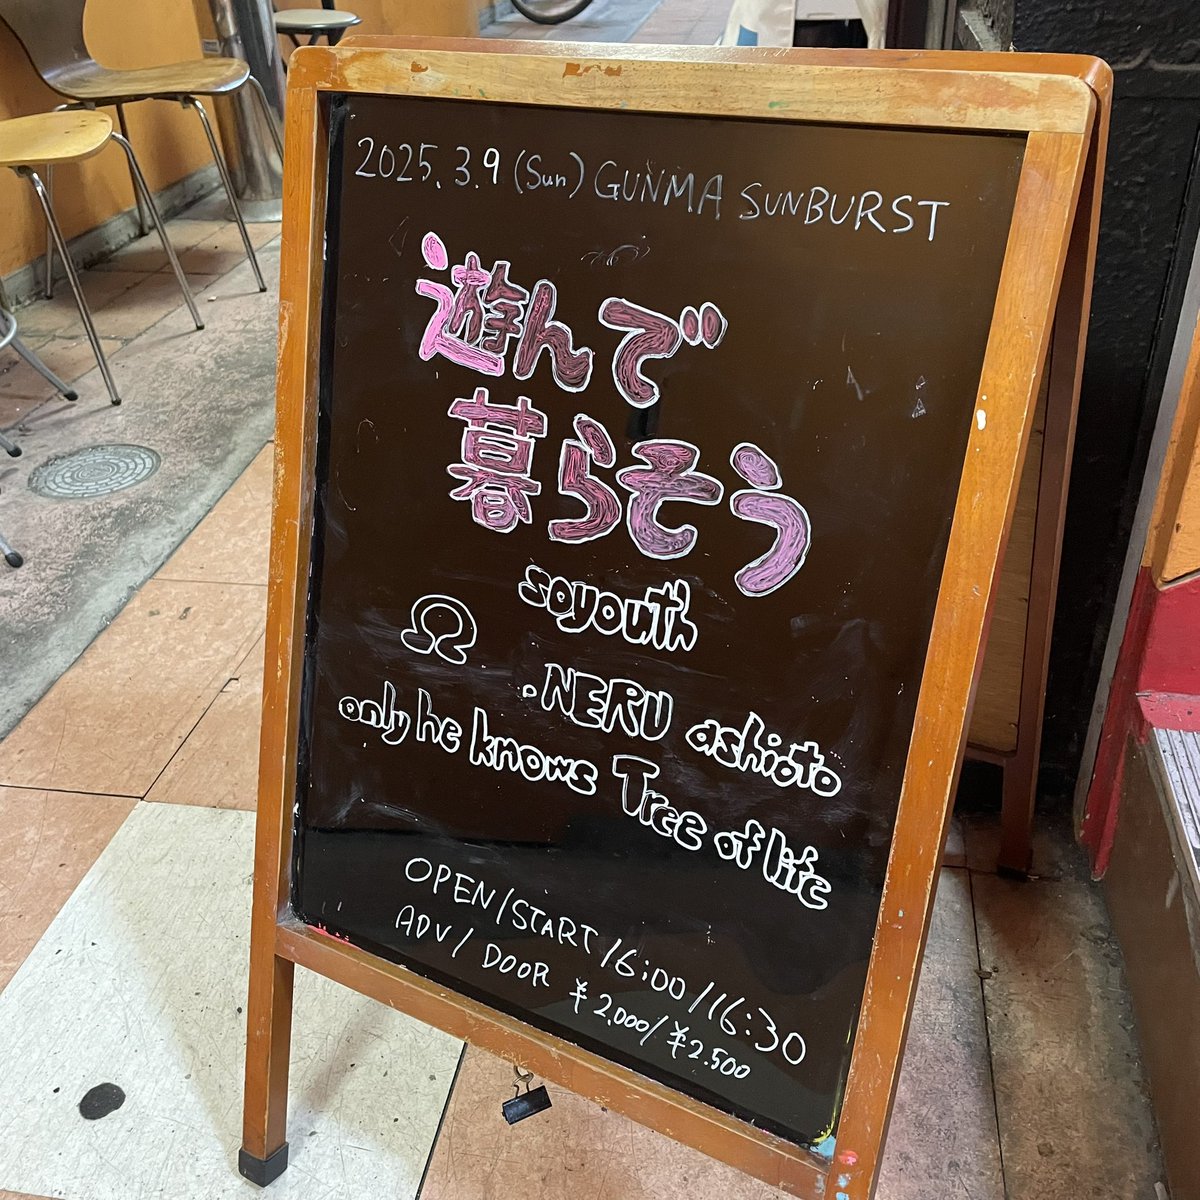 2025.3.9 (Sun) GUNMA SUNBURST
遊んで
暮らそう
soyouth
Ω .NERU ashioto
only he knows Tree of life
OPEN/START 16:00/16:30
ADV/DOOR ¥2,000/¥2.500